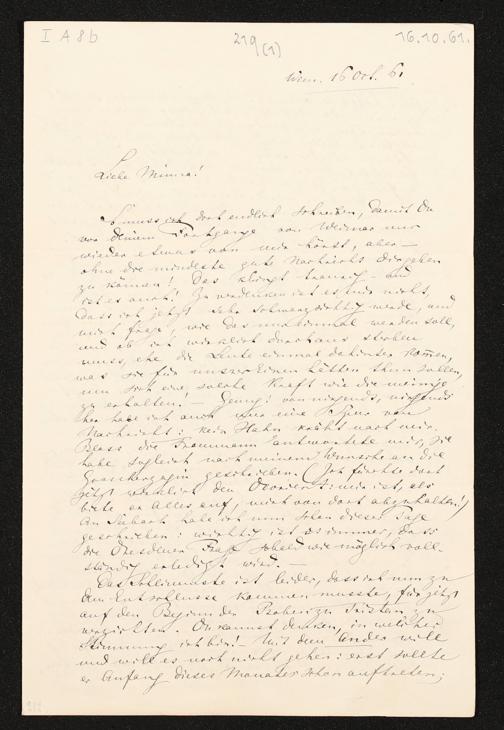 I A 8 b
219 (1)
16.10.61.
Wien. 16 Oct. 61
Liebe Minna!
So muss ich doch endlich schreiben, damit Du
vor Deinem Fortgange von Weimar nur
wieder etwas von mir hörst, aber —
ohne die mindeste gute Nachricht Dir geben
zu können! Das klingt traurig — und
ist es auch! Zu verdenken ist es mir nicht,
dass ich jetzt sehr schwarzsichtig werde, und
mich frage, wie das nun einmal werden soll,
und ob ich wirklich durchaus sterben
muss, ehe die Leute einmal dahinter kommen,
was sie für unser Einen hätten thun sollen,
um sich eine solche Kraft wie die meinige
zu erhalten! — Genug: von nirgends, nirgends
her habe ich auch nur eine Spur von
Nachricht: kein Hahn kräht nach mir.
Bloss die Frommann antwortete mir, sie
habe sogleich nach meinem Wunsche an die
Grossherzogin geschrieben. (Ich fürchte dort
jetzt wirklich den : mir ist, als
biete er Alles auf, mich von dort abzuhalten!)
An habe ich nun schon dieser Tage
geschrieben: wichtig ist es immer, dass
die Dresdener Frage sobald wie möglich voll-
ständig erledigt wird. —
Das Schlimmste ist leider, dass ich nun zu
dem Entschlusse kommen musste, für jetzt
auf den Beginn der Proben zu Tristan zu
verzichten. Du kannst denken, in welcher
Stimmung ich bin! — Mit dem Ander will
und will es noch nicht gehen: erst sollte
er Anfang dieses Monates schon auftreten;